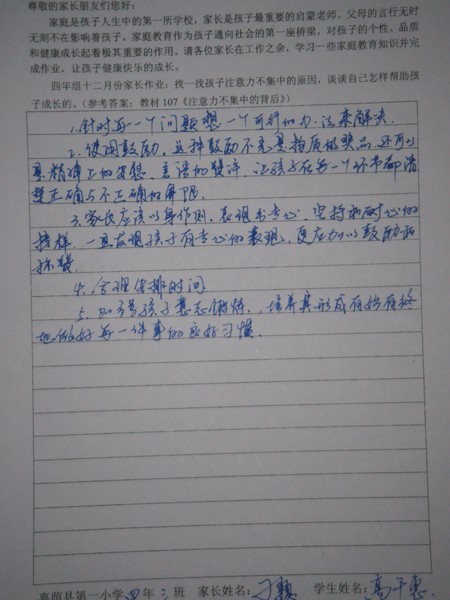 尊敬的家长朋友们您好:
家庭是孩子人生中的第一所学校,家长是孩子最重要的启蒙老师。父母的言行无时
无刻不在影响着孩子。家庭教育作为孩子通向社会的第一座桥梁,对孩子的个性、品质
和健康成长起着极其重要的作用。请各位家长在工作之余,学习一些家庭教育知识并完
成作业,让孩子健康快乐的成长。
四年组十二月份家长作业:找一找孩子注意力不集中的原因,谈谈自己怎样帮助孩
子成长的。(参考答案:教材 107《注意力不集中的背后》)
1.针对每一个问题想一个可行的办法来解决
2.使用鼓励,这种鼓励不光是物质的奖品,还可以
是精神上的安慰、言语的赞许,让孩子在每一个环节都清
楚正确与不正确的界限
3.家长应该以身作则,表现出专心、坚持和耐心的
榜样,一旦发现孩子有专心的表现,更应加以鼓励和
称赞
4.合理安排时间
5.加强孩子意志锻炼,培养其形成有始有终
地做好每一件事的良好习惯.
嘉荫县第一小学四年三班 家长姓名: 学生姓名: